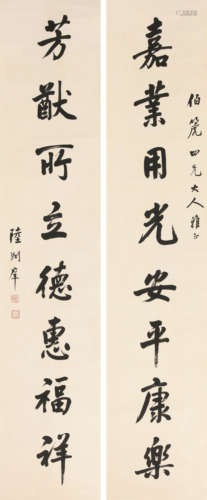 伯 四兄大人雅正
嘉業用光安平康樂
芳猷所立德惠福祥
陸潤庠